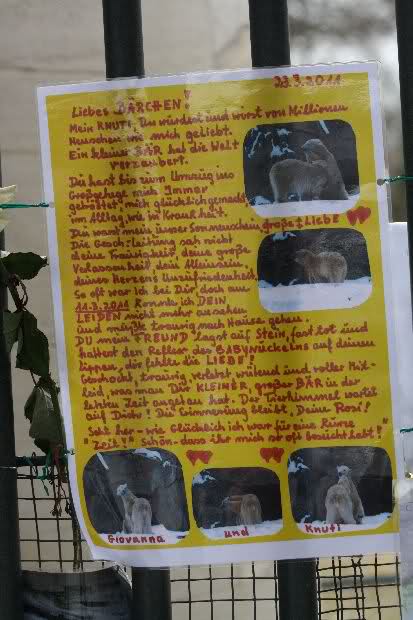 23.3.2011
Liebes BÄRCHEN!
Mein KNUTI, Du würdest und wirst von Millionen
Menschen wie mich geliebt.
Ein kleiner BÄR hat die Welt
verzaubert.
Du hast bis zum Umzug ins
Großgehege mich immer
getröstet mich glücklich gemacht
im Alltag, wie in Krankheit.
Du warst mein inner Sonnenschein, große Liebe
Die Gesch:leitung sah nicht
deine Traurigkeit, deine große
Verlassenheit, dein Alleinsein
deines Herzens Unzufriedenheit.
So oft war ich bei Dir, doch am
11.3.2011 konnte ich DEIN
LEIDEN nicht mehr ansehen
und mußte traurig nach Hause gehen.
DU mein FREUND lagst auf STEIN, fast tot und
hattest den Reflex des BABYNUCKELNS auf deinen
Lippen, dir fehlte die LIEBE!
Geschockt, traurig, verletzt wütend und voller Mit-
leid, was man Dir KLEINER, großer BÄR in der
letzten Zeit angetan hat. Der Tierhimmel wartet
auf Dich! Die Erinnerung bleibt, Deine Rosi!
Seht her - wie Glücklich ich war für eine kurze
"Zeit!" Schön - dass ihr mich so oft besucht habt!"
Giovanna
und
Knuti